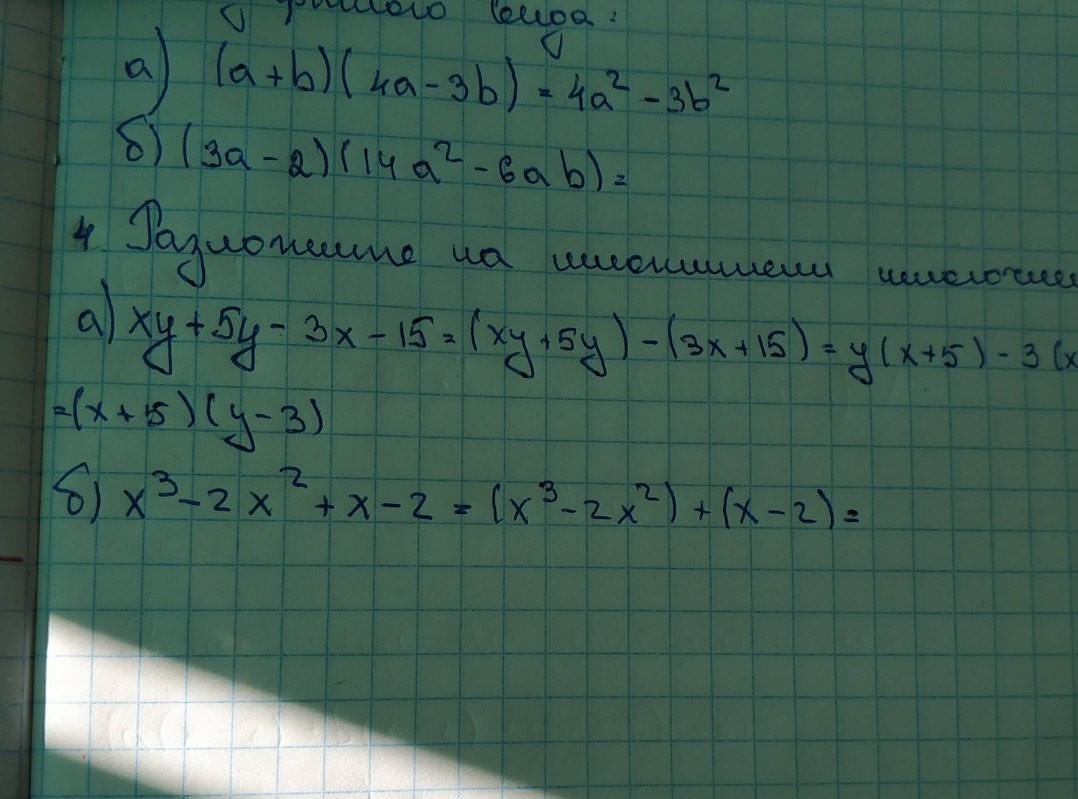 вида:
а) (a+b)(4a-3b)=4a²-3b²
б) (3a-2)(14a²-6ab)=
4. Разложите на множители
а) xy+5y-3x-15=(xy+5y)-(3x+15)=y(x+5)-3(x
=(x+5)(y-3)
б) x³-2x²+x-2=(x³-2x²)+(x-2)=